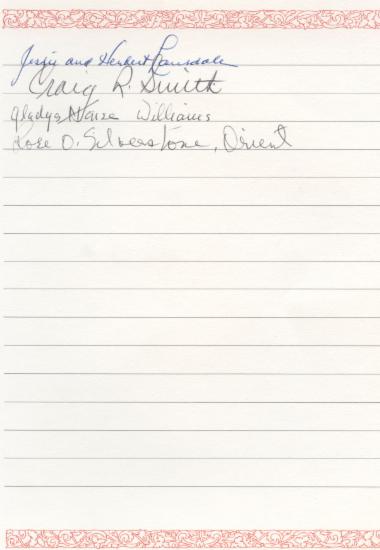 Jessie and Herbert Lansdale
Craig R. Smith
Gladys Williams
Rose O. Silverstone, Orient